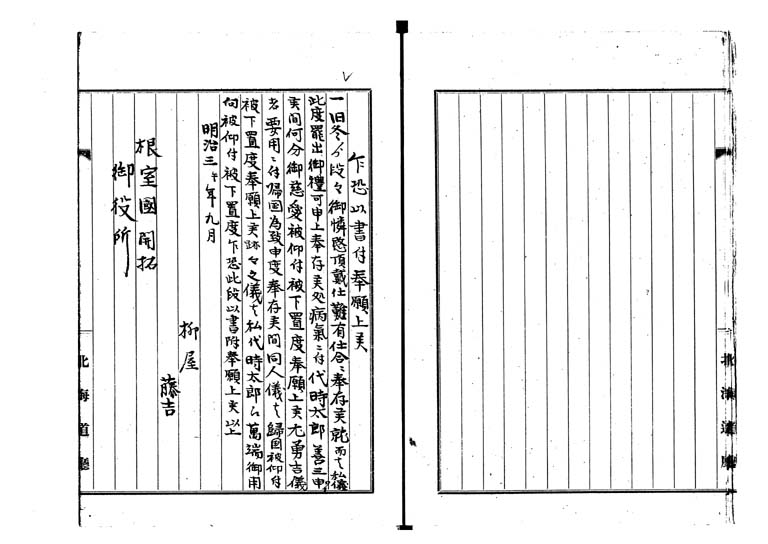 乍恐以書付奉願上候
一旧冬ゟ段々御憐愍頂戴仕難有仕合ニ奉存候就而ハ私儀
此度罷出御禮可申上奉存候処病氣ニ付代時太郎善三申
候間何分御慈愛被仰付被下置度奉願上候尤勇吉儀
者要用ニ付帰国為致申度奉存候間同人儀ハ帰国被仰付
被下置度奉願上候跡々之儀ハ私代時太郎ゟ萬端御用
向被仰付被下置度乍恐此段以書附奉願上候以上
明治三午年九月
柳屋
藤吉
根室國開拓
御役所
北海道廳
北海道廳